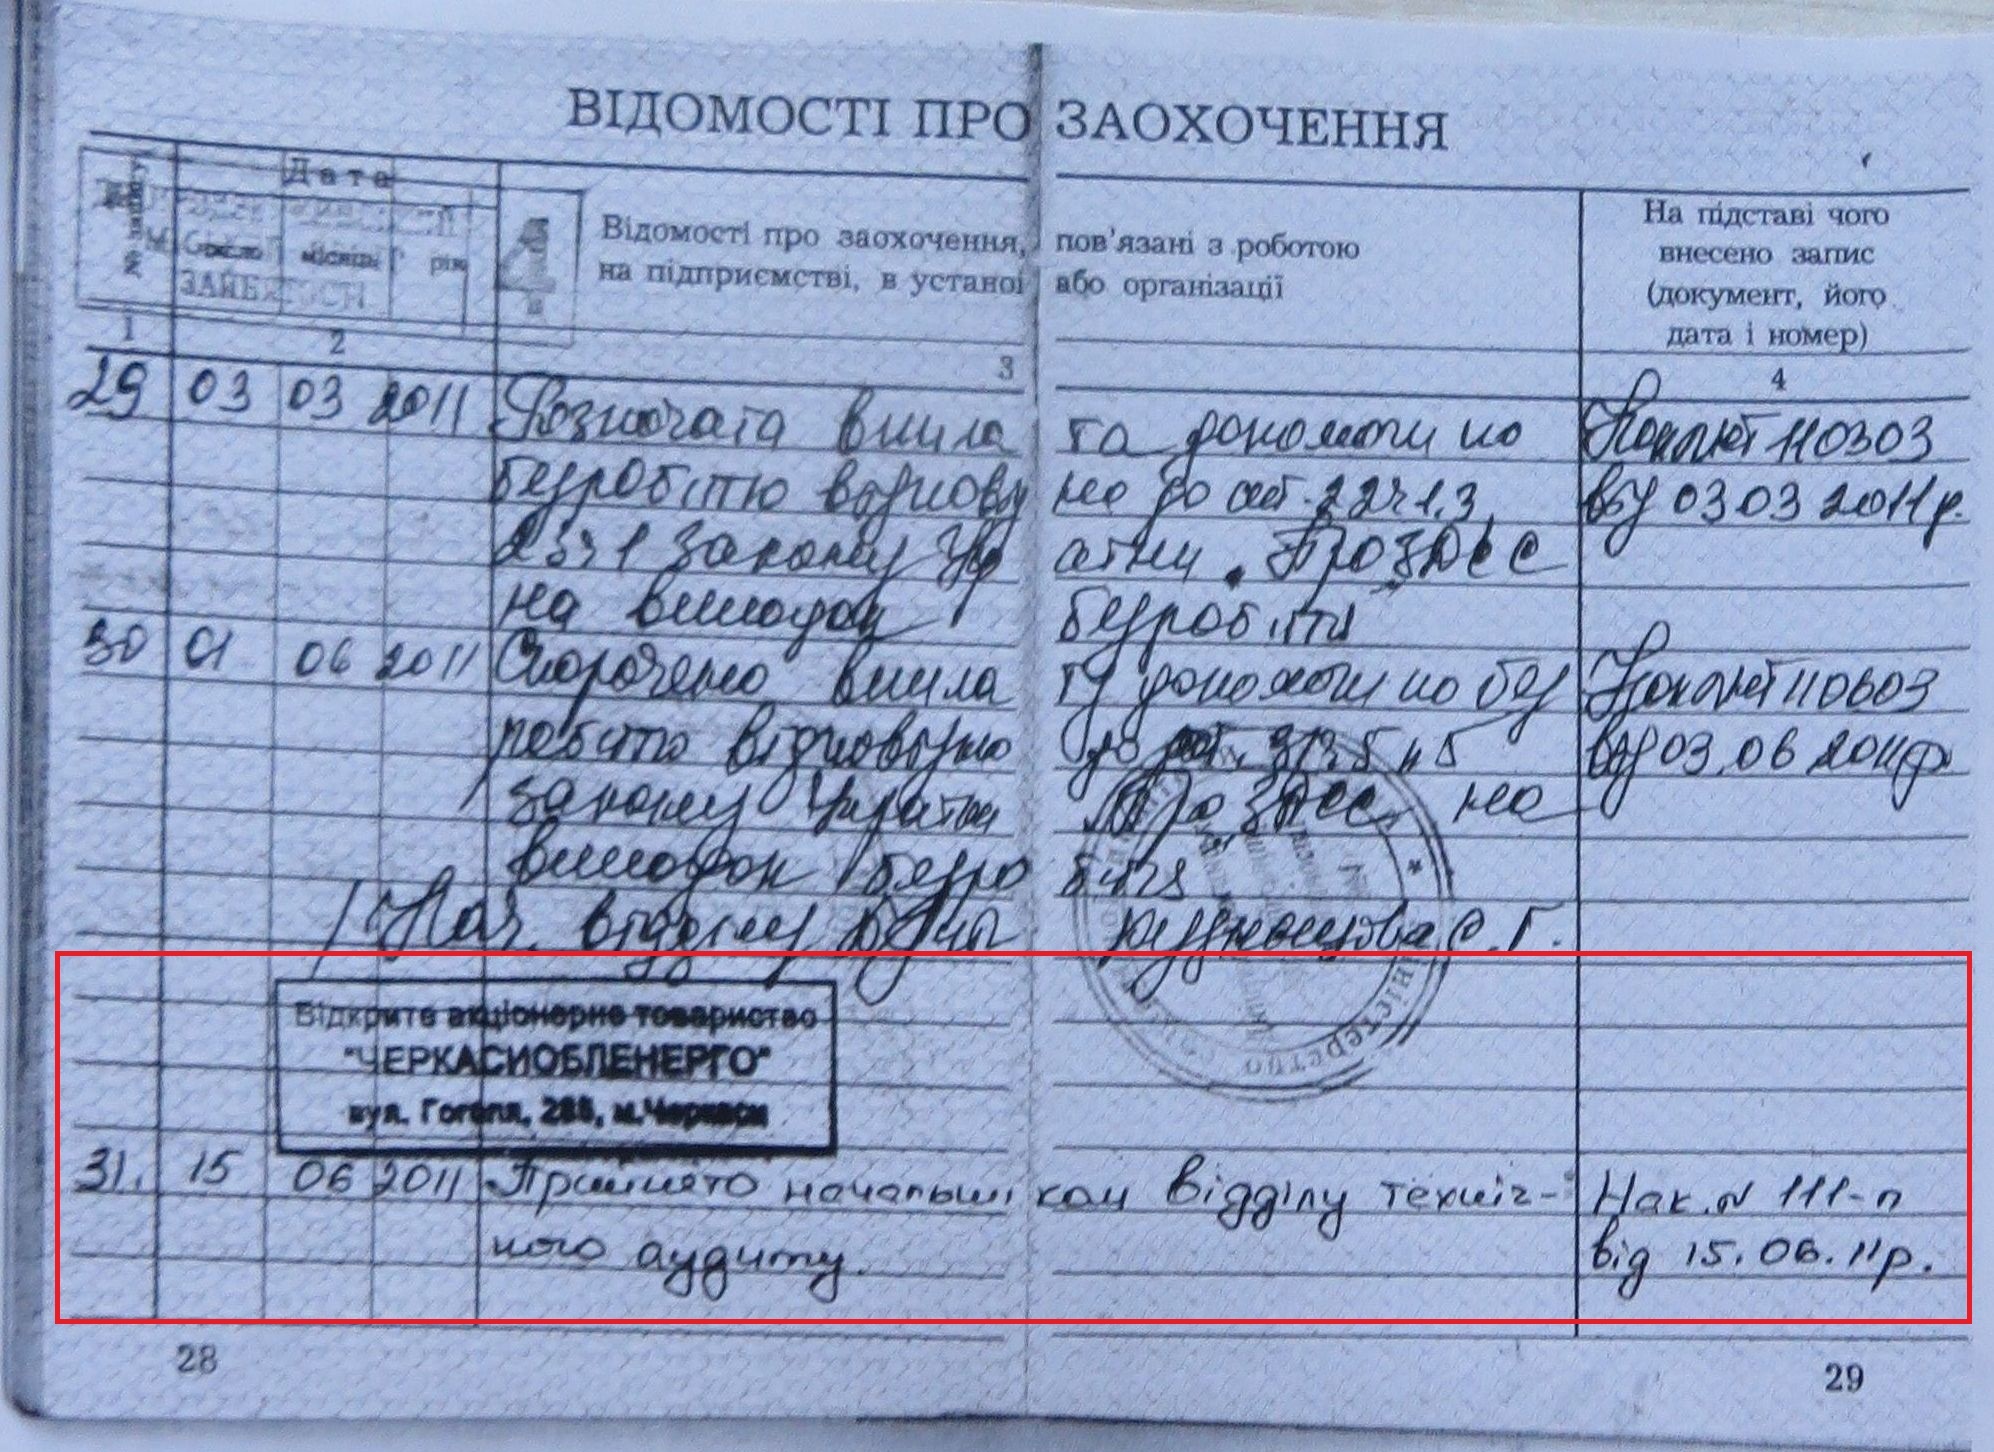 ВІДОМОСТІ ПРО ЗАОХОЧЕННЯ
№ запису
Дата
Число місяць рік
ЗАЙНЯТОСТІ
Відомості про заохочення, пов'язані з роботою
на підприємстві, в установі або організації
На підставі чого
внесено запис
(документ, його
дата і номер)
1 2 3 4
29 03 03 2011 Розпочата виплата допомоги по Наказ 110303
безробіттю відповідно до ст. 22 ч 1.3 від 03 03 2011р.
23 ч 1 Закону України "Про ЗДСС
на випадок безробіття
30 01 06 2011 Скорочено виплату допомоги по без Наказ 110603
робіттю відповідно до ст. 31 ч 5 п 5 від 03.06 2011р
закону України "Про ЗДСС на
випадок безробіття
Нач. відділу С.Г.
Міністерство
Відкрите акціонерне товариство
"ЧЕРКАСИОБЛЕНЕРГО"
вул. Гоголя, 285, м.Черкаси
31. 15 06 2011 Прийнято начальником відділу техніч- Нак. № 111-п
ного аудиту. від 15.06.11р.
28
29